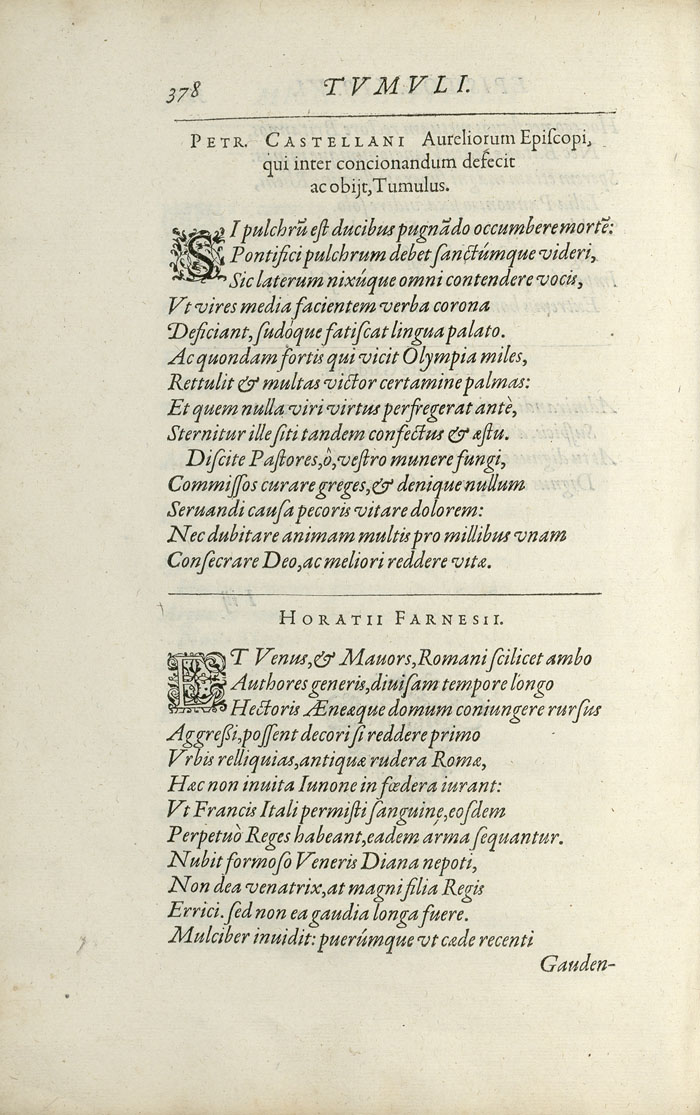 378 TVMVLI.
PETR. CASTELLANI Aureliorum Epiſcopi,
qui inter concionandum defecit
ac obijt, Tumulus.
SI pulchrũ eſt ducibus pugnãdo occumbere mortẽ:
Pontifici pulchrum debet ſanctúmque videri,
Sic laterum nixúque omni contendere vocis,
Vt vires media facientem verba corona
Deficiant, ſudóque fatiſcat lingua palato.
Ac quondam fortis qui vicit Olympia miles,
Rettulit & multas victor certamine palmas:
Et quem nulla viri virtus perfregerat antè,
Sternitur ille ſiti tandem confectus & æſtu.
Diſcite Paſtores, ô, veſtro munere fungi,
Commiſſos curare greges, & denique nullum
Seruandi cauſa pecoris vitare dolorem:
Nec dubitare animam multis pro millibus vnam
Conſecrare Deo, ac meliori reddere vitæ.
HORATII FARNESII.
ET Venus, & Mauors, Romani ſcilicet ambo
Authores generis, diuiſam tempore longo
Hectoris Æneæque domum coniungere rurſus
Aggreßi, poſſent decori ſi reddere primo
Vrbis relliquias, antiquæ rudera Romæ,
Hæc non inuita Iunone in fœdera iurant:
Vt Francis Itali permiſti ſanguine, eoſdem
Perpetuò Reges habeant, eadem arma ſequantur.
Nubit formoſo Veneris Diana nepoti,
Non dea venatrix, at magni filia Regis
Errici. ſed non ea gaudia longa fuere.
Mulciber inuidit: puerúmque vt cæde recenti
Gauden-